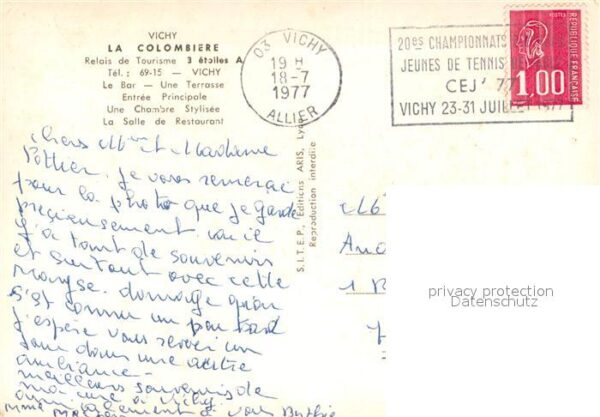 VICHY
LA COLOMBIÈRE
Relais de Tourisme 3 étoiles A
Tél. : 69-15 — VICHY
Le Bar — Une Terrasse
Entrée Principale
Une Chambre Stylisée
La Salle de Restaurant
03 VICHY
19 H
18-7
1977
ALLIER
20es CHAMPIONNATS
JEUNES DE TENNIS DE
CEJ' 77
VICHY 23-31 JUILLET 1977
POSTES
REPUBLIQUE FRANÇAISE
1,00
S.I.T.E.P., Editions ARIS, Lyon
Reproduction interdite
chers Mr et Madame
Pothier. je vous remercie
pour la photo que je garde
précieusement car il
y a tant de souvenir
et surtout avec cette
domage qu'on
s'est connu un peu tard
j'espère vous revoir un
jour dans une autre
ambiance.
meilleurs souvenirs de
ma cure à Vichy.
à vous
Mme
1
privacy protection
Datenschutz